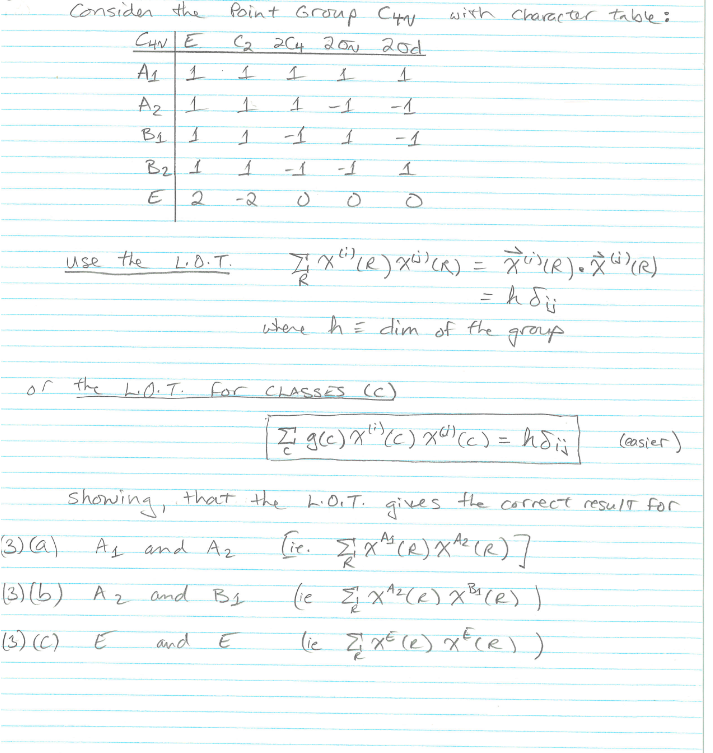 Consider the Point Group C4v with character table:
C4v | E C2 2C4 2σv 2σd
A1 | 1 1 1 1 1
A2 | 1 1 1 -1 -1
B1 | 1 1 -1 1 -1
B2 | 1 1 -1 -1 1
E | 2 -2 0 0 0
use the L.O.T. Σ_R χ^(i)(R) χ^(j)(R) = χ⃗^(i)(R) • χ⃗^(j)(R)
= h δij
where h ≡ dim of the group
or the L.O.T. for CLASSES (C)
Σ_c g(c) χ^(i)(c) χ^(j)(c) = h δij (easier)
showing, that the L.O.T. gives the correct result for
(3)(a) A1 and A2 [ie. Σ_R χ^A1(R) χ^A2(R)]
(3)(b) A2 and B1 (ie Σ_R χ^A2(R) χ^B1(R))
(3)(C) E and E (ie Σ_R χ^E(R) χ^E(R))